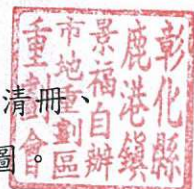 清冊、
圖。
彰化縣
鹿港鎮
景福自辦
市地重劃區
重劃會